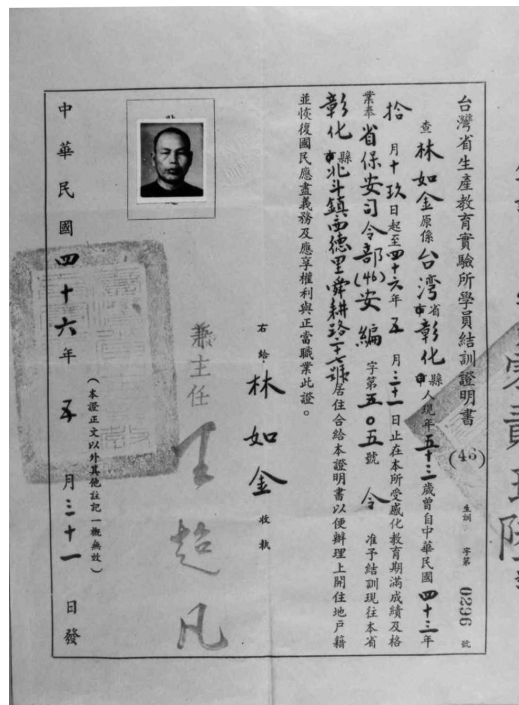 台灣省生產教育實驗所學員結訓證明書 (46) 生訓 字第 0296 號
查林如金原係台湾省市彰化縣市人現年五十三歲曾自中華民國四十三年
拾月十玖日起至四十六年五月三十一日止在本所受感化教育期滿成績及格
業奉省保安司令部(46)安編字第五〇五號令准予結訓現往本省
彰化縣市北斗鎮西德里舜耕路二七號居住合給本證明書以便辦理上開住地戶籍
並恢復國民應盡義務及應享權利與正當職業此證。
右給 林如金 收執
兼主任 王超凡
(本證正文以外其他註記一概無效)
中華民國四十六年五月三十一日發